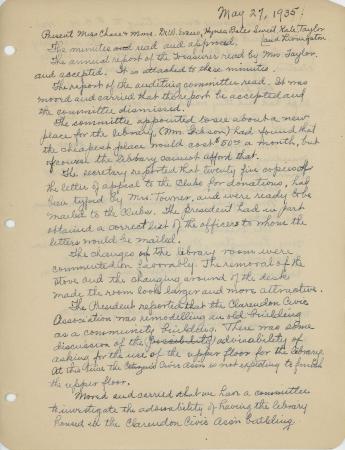 May 27, 1935.
Present Miss Mmes. Dr. W. Evans, Hynes Bates Sweet, Kate Taylor
and Livingston
The minutes read and approved.
The annual report of the Treasurer read by Mrs. Taylor
and accepted. It is attached to these minutes.
The report of the auditing committee read. It was
moved and carried that the report be accepted and
the committee dismissed.
The committee appointed to see about a new
place for the library, (Mrs. Gibson) had found that
the cheapest place would cost $50.00 a month, but
of course the library cannot afford that.
The secretary reported that twenty five copies of
the letter of appeal to the Clubs for donations, had
been typed by Mrs. Towner, and were ready to be
mailed to the Clubs. The President had in part
obtained a correct list of the officers to whom the
letters would be mailed.
The changes of the library room were
commented on favorably. The removal of the
stove and the changing around of the desks
made the room look larger and more attractive.
The President reported that the Clarendon Civic
Association was remodelling an old building
as a community building. There was some
discussion of the (possibility) advisability of
asking for the use of the upper floor for the library.
At this time the Civic Assn is not expecting to finish
the upper floor.
Moved and carried that we have a committee
to investigate the advisability of having the library
housed in the Clarendon Civic Assn building.